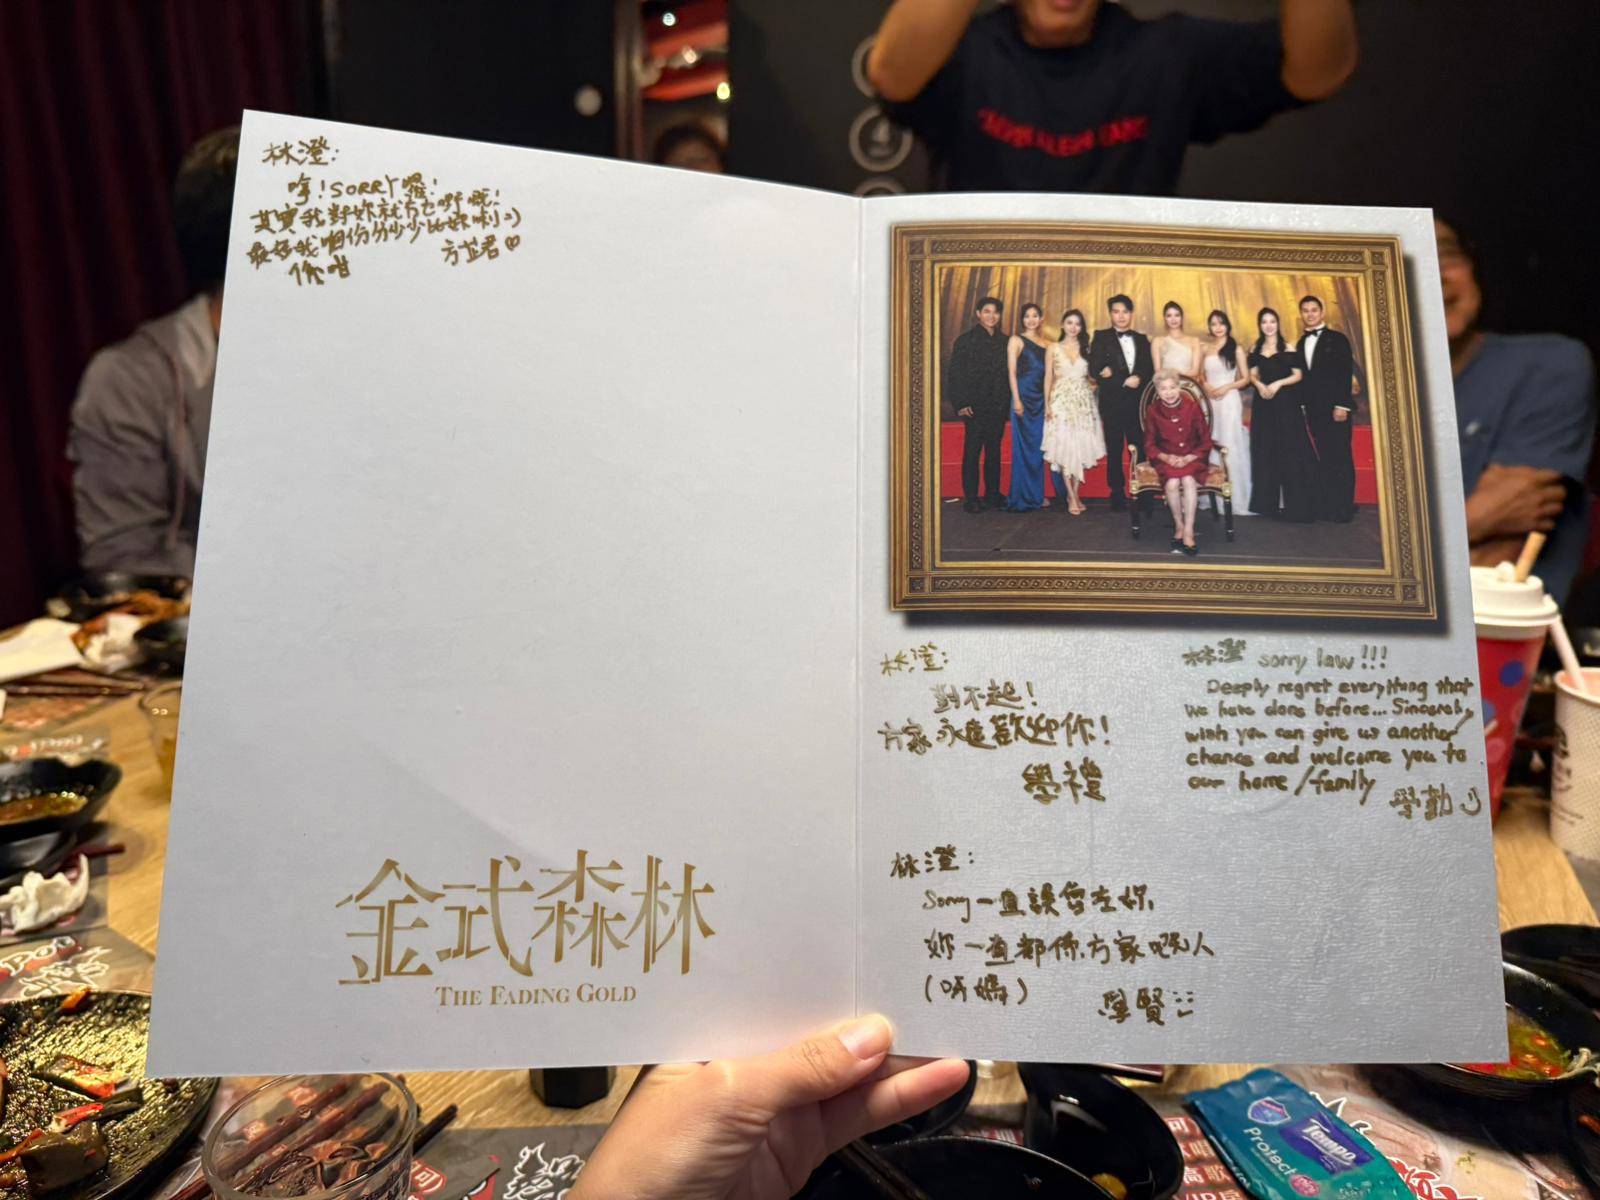 林澄:
哼! SORRY囉!
其實我對妳就冇乜嘢嘅!
最多我個份分少少比妳喇 :)
係咁
方芷君♡
金式森林
THE FADING GOLD
林澄:
對不起!
方家永遠歡迎你!
學禮
林澄 sorry law!!!
Deeply regret everything that
we have done before... Sincerely
wish you can give us another
chance and welcome you to
our home/family
學勤 :)
林澄:
Sorry一直誤會左妳,
妳一直都係方家嘅人
(呀媽)
學賢 :)
Tempo
Protect